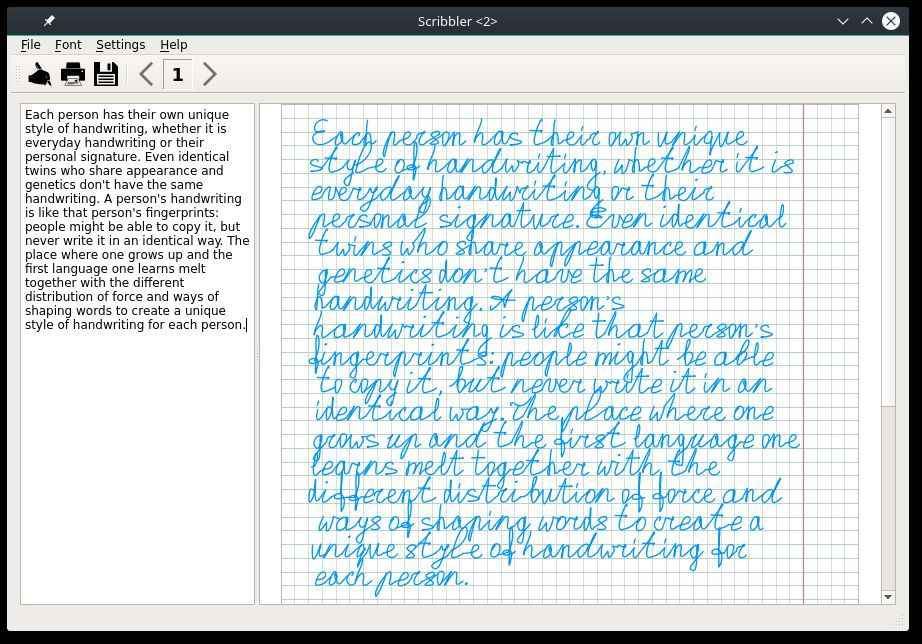 Scribbler <2>
File Font Settings Help
1
Each person has their own unique
style of handwriting, whether it is
everyday handwriting or their
personal signature. Even identical
twins who share appearance and
genetics don't have the same
handwriting. A person's handwriting
is like that person's fingerprints:
people might be able to copy it, but
never write it in an identical way. The
place where one grows up and the
first language one learns melt
together with the different
distribution of force and ways of
shaping words to create a unique
style of handwriting for each person.
Each person has their own unique
style of handwriting, whether it is
everyday handwriting or their
personal signature. Even identical
twins who share appearance and
genetics don't have the same
handwriting. A person's
handwriting is like that person's
fingerprints: people might be able
to copy it, but never write it in an
identical way. The place where one
grows up and the first language one
learns melt together with the
different distribution of force and
ways of shaping words to create a
unique style of handwriting for
each person.